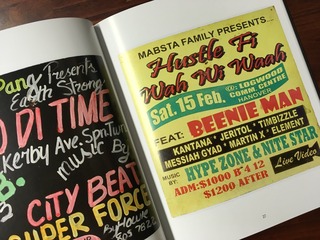 Pang Presents
Earth Strong
O DI TIME
Kerby Ave. SpnTwn
MUSIC By
CITY BEAT
SUPER FORCE
MABSTA FAMILY PRESENTS...
Hustle Fi
Wah Wi Waah
Sat. 15 Feb.
LOGWOOD
COMM. CENTRE
HANOVER
FEAT. BEENIE MAN
KANTANA * JERITOL * TIMBIZZLE
MESSIAH GYAD * MARTIN X * ELEMENT
MUSIC BY: HYPE ZONE & NITE STAR
ADM:$1000 B'4 12
$1200 AFTER
Live Video